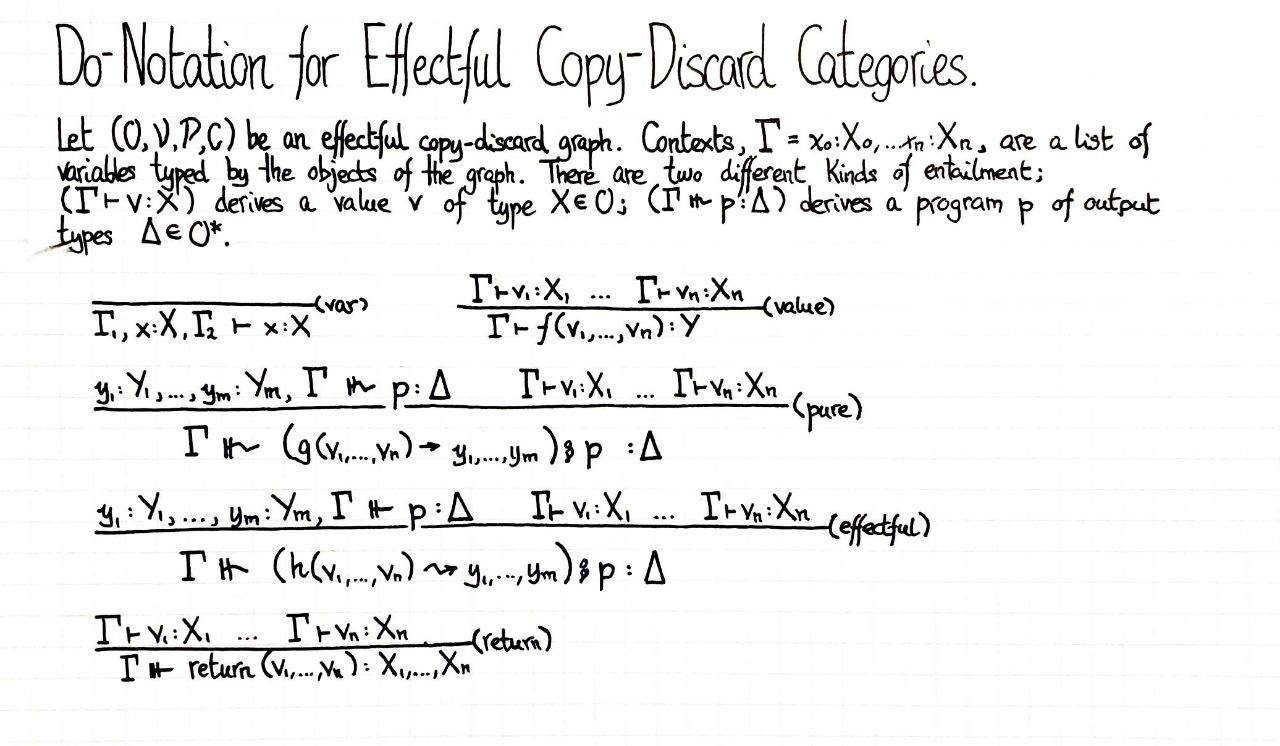 Do-Notation for Effectful Copy-Discard Categories.
Let (O,V,P,C) be an effectful copy-discard graph. Contexts, Γ = x₀:X₀,...xₙ:Xₙ, are a list of
variables typed by the objects of the graph. There are two different Kinds of entailment;
(Γ ⊢ v:X) derives a value v of type X∈O; (Γ ⊩ p:Δ) derives a program p of output
types Δ∈O*.
(var)
Γ₁, x:X, Γ₂ ⊢ x:X
Γ⊢v₁:X₁ ... Γ⊢vₙ:Xₙ (value)
Γ⊢ f(v₁,...,vₙ):Y
y₁:Y₁,...,yₘ:Yₘ, Γ ⊩ p:Δ Γ⊢v₁:X₁ ... Γ⊢vₙ:Xₙ (pure)
Γ ⊩ (g(v₁,...,vₙ) → y₁,...,yₘ)⨾p :Δ
y₁:Y₁,...,yₘ:Yₘ, Γ ⊩ p:Δ Γ⊢v₁:X₁ ... Γ⊢vₙ:Xₙ (effectful)
Γ ⊩ (h(v₁,...,vₙ) ⇝ y₁,...,yₘ)⨾p : Δ
Γ⊢v₁:X₁ ... Γ⊢vₙ:Xₙ (return)
Γ ⊩ return(v₁,...,vₙ): X₁,...,Xₙ